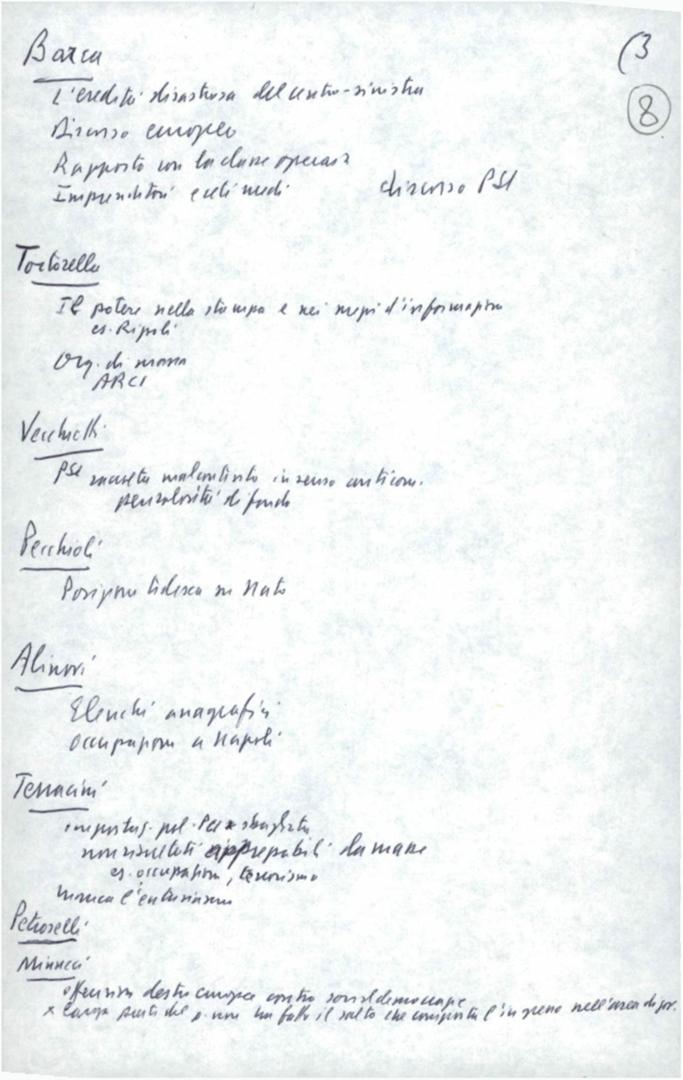 Barca
(3
8
L'eredità disastrosa del centro-sinistra
Discorso europeo
Rapporto con la classe operaia
Imprenditori e ceti medi
discorso PSI
Tortorella
Il potere nella stampa e nei mezzi d'informazione
es. Rizzoli
Org. di massa
ARCI
Vecchietti
PSI malcontento in senso anticom.
pericolosità di fondo
Pecchioli
Posizione tedesca su Nato
Alinovi
Elenchi anagrafici
Occupazione a Napoli
Terracini
impostaz. pol. Pci è sbagliata
non risultati apprezzabili da masse
es. occupazione, terrorismo
manca l'entusiasmo
Petroselli
Minucci
offensiva destra europea contro socialdemocrazie
x larga parte del p. non ha fatto il salto che comporta l'ingresso nell'area di gov.